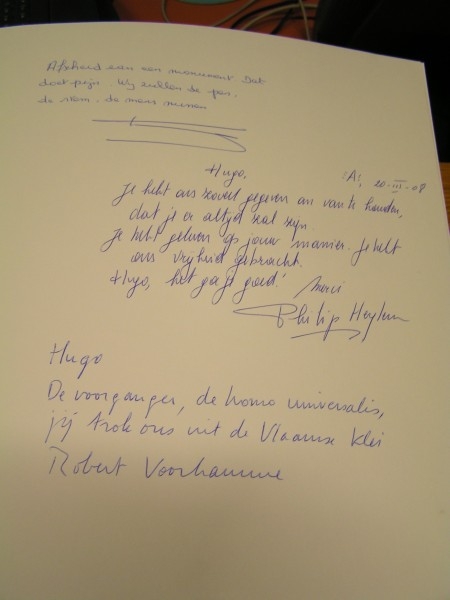 Afscheid van een monument dat
doet pijn. Wij zullen de pen.
de stem. de mens missen
Hugo,
'A', 20-III-08
Je hebt ons zoveel gegeven om van te houden,
dat je er altijd zal zijn.
Je hebt geleven op jouw manier. Je hebt
ons vrijheid gebracht.
Hugo, het ga je goed!
Merci
Philip Heylen
Hugo
De voorganger, de homo universalis,
jij trok ons uit de Vlaamse klei
Robert Voorhamme